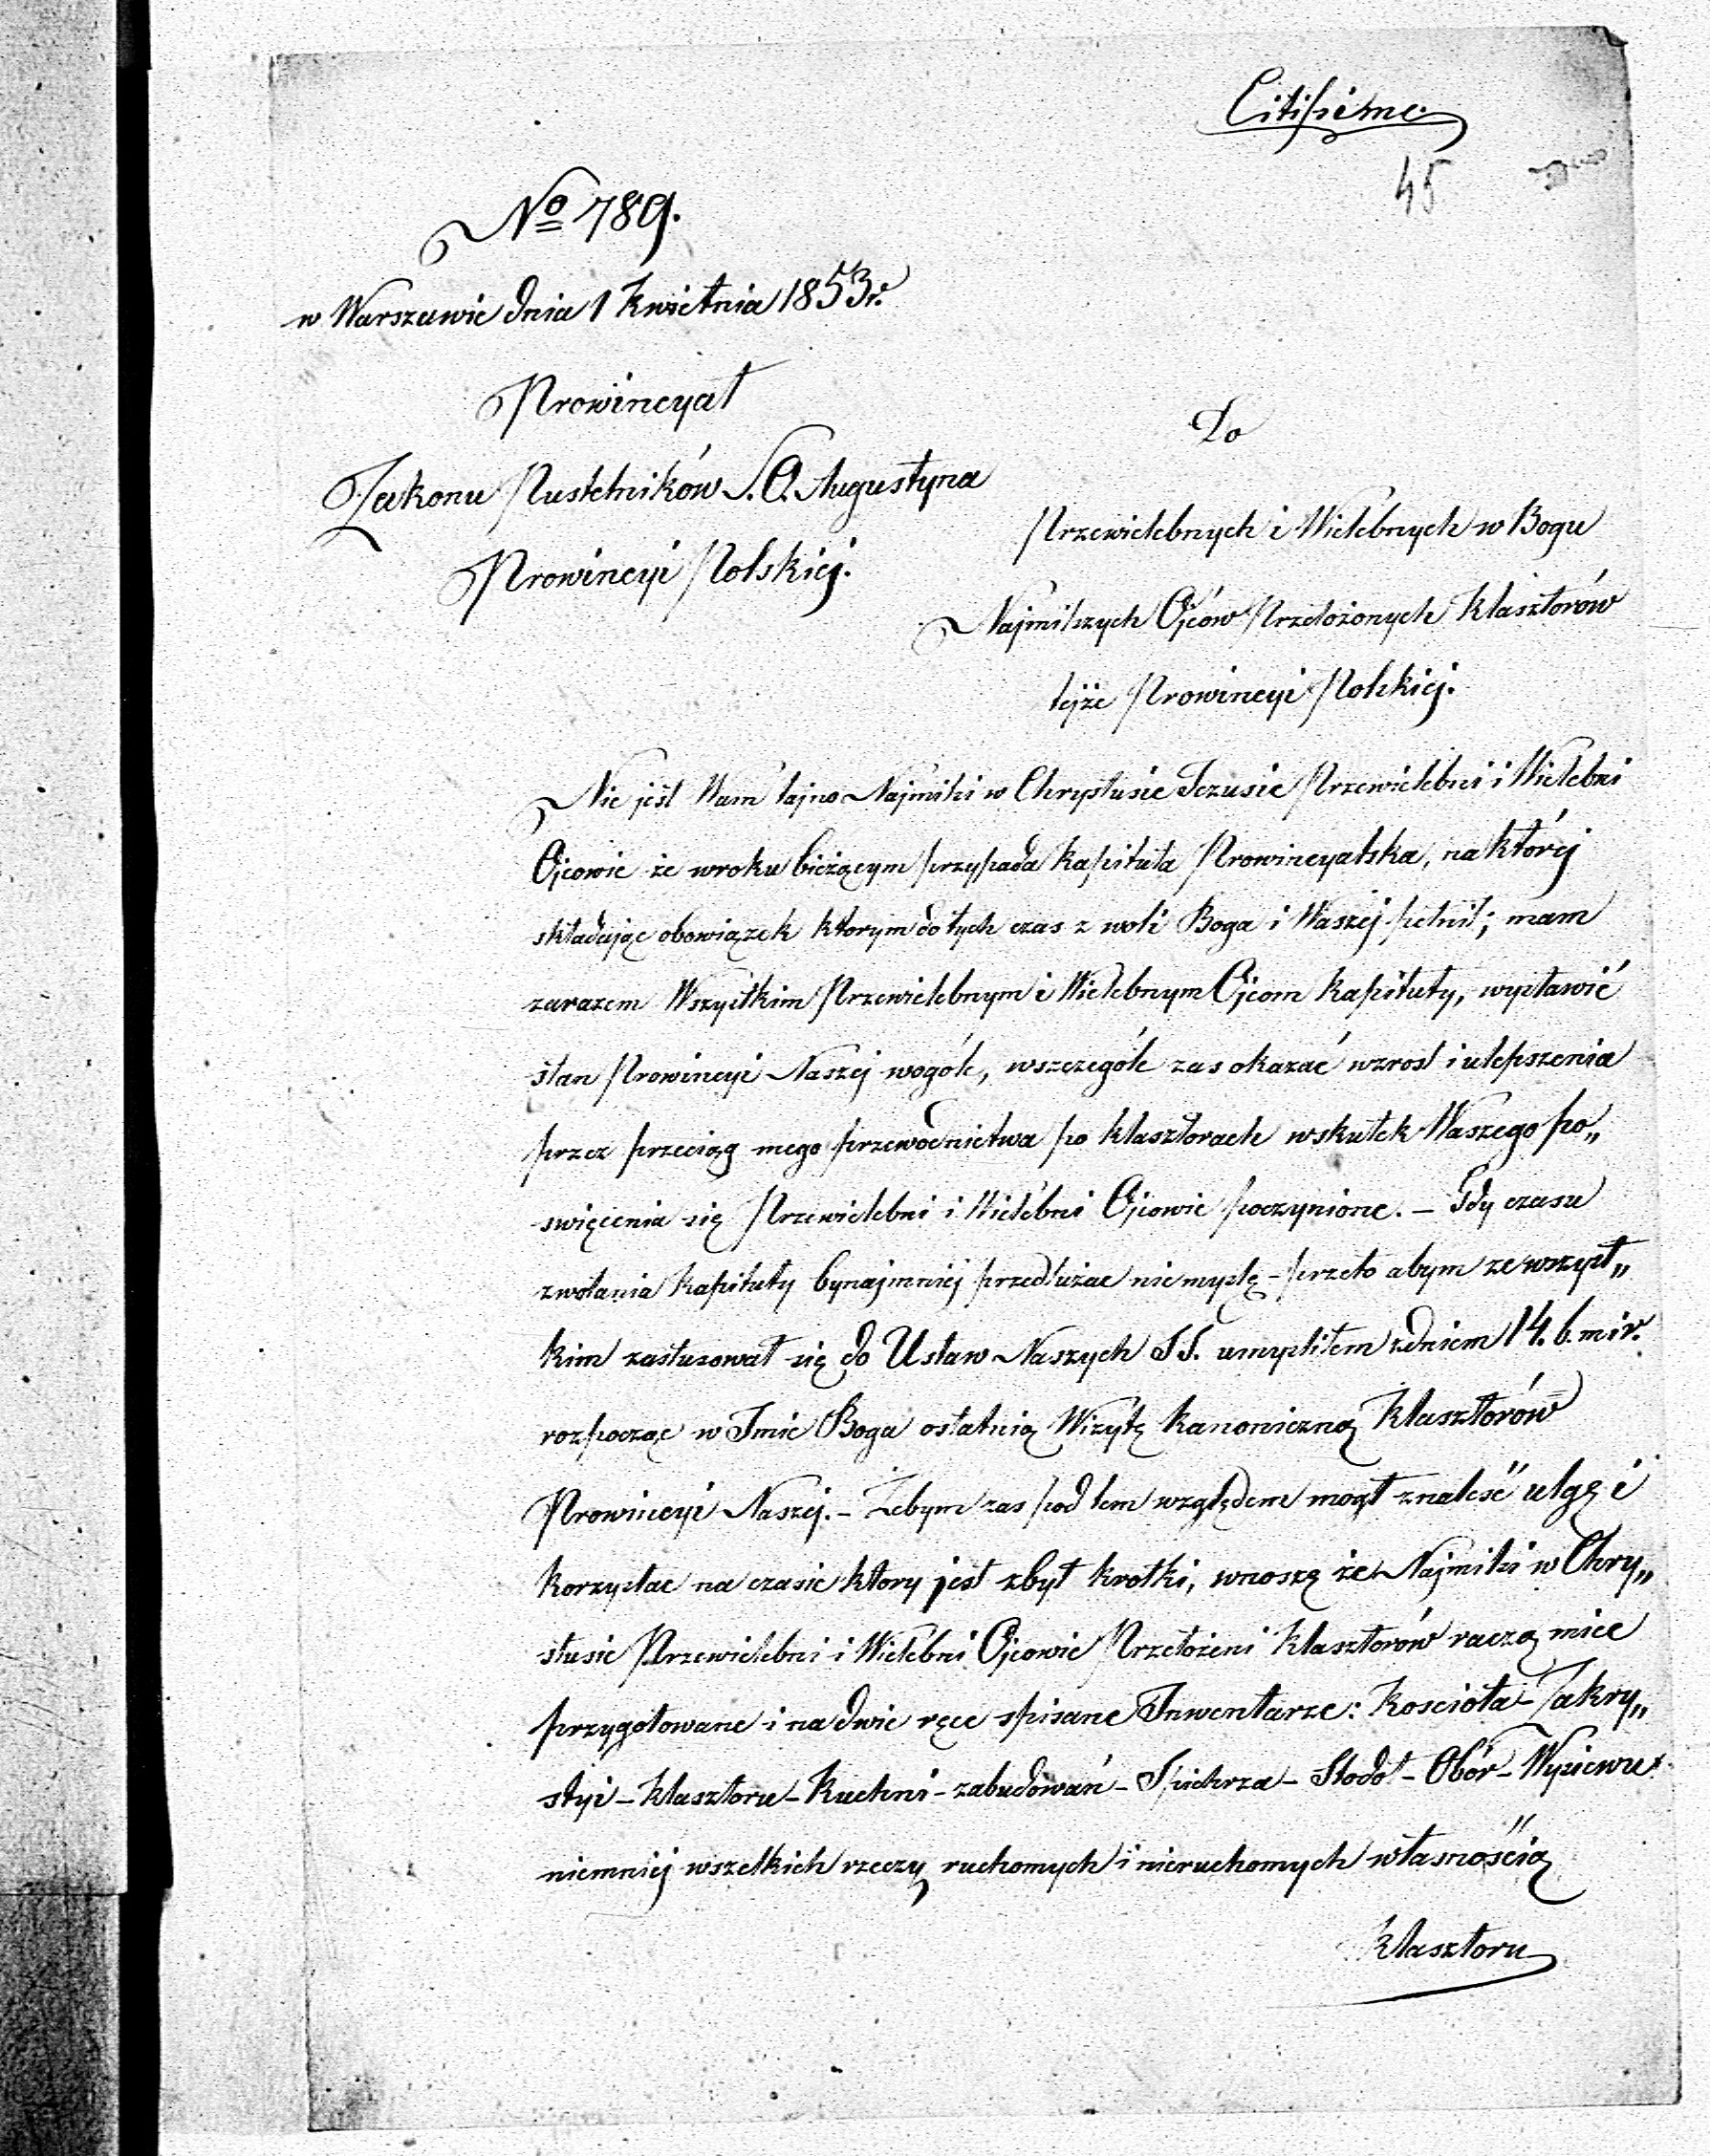 Citissime
45
No 789.
w Warszawie dnia 1 Kwietnia 1853 r.
Prowincyał
Zakonu Pustelników S. O. Augustyna
Prowincyi Polskiej.
Do
Przewielebnych i Wielebnych w Bogu
Najmilszych Ojców Przełożonych Klasztorów
tejże Prowincyi Polskiej.
Nie jest Wam tajno Najmilsi w Chrystusie Jezusie Przewielebni i Wielebni
Ojcowie że wroku bieżącym przypada Kapituła Prowincyalska, na której
składając obowiązek którym do tych czas z woli Boga i Waszej pełnił; mam
zarazem Wszystkim Przewielebnym i Wielebnym Ojcom Kapituły, wystawić
stan Prowincyi Naszej wogóle, wszczególe zas okazać wzrost i ulepszenia
przez przeciąg mego przewodnictwa po klasztorach wskutek Waszego po„
swięcenia się Przewielebni i Wielebni Ojcowie poczynione. – Gdy czasu
zwołania Kapituły bynajmniej przedłużac nie myslę – przeto abym ze wszyst„
kim zastosował się do Ustaw Naszych SS. umysliłem z dniem 14. b. m i r.
rozpocząc w Imie Boga ostatnią Wizytę Kanoniczną Klasztorów
Prowincyi Naszej. – Żebym zas pod tem względem mogł znaleść ulgę i
korzystac na czasie ktory jest zbyt krotki, wnoszę że Najmilsi w Chry„
stusie Przewielebni i Wielebni Ojcowie Przełożeni Klasztorów raczą miec
przygotowane i na dwie ręce spisane Inwentarze: Koscioła – Zakry„
styi – Klasztoru – Kuchni – zabudowań – Spichrza – Stodoł – Obór – Wysiewu
niemniej wszelkich rzeczy ruchomych i nieruchomych własnością
Klasztoru